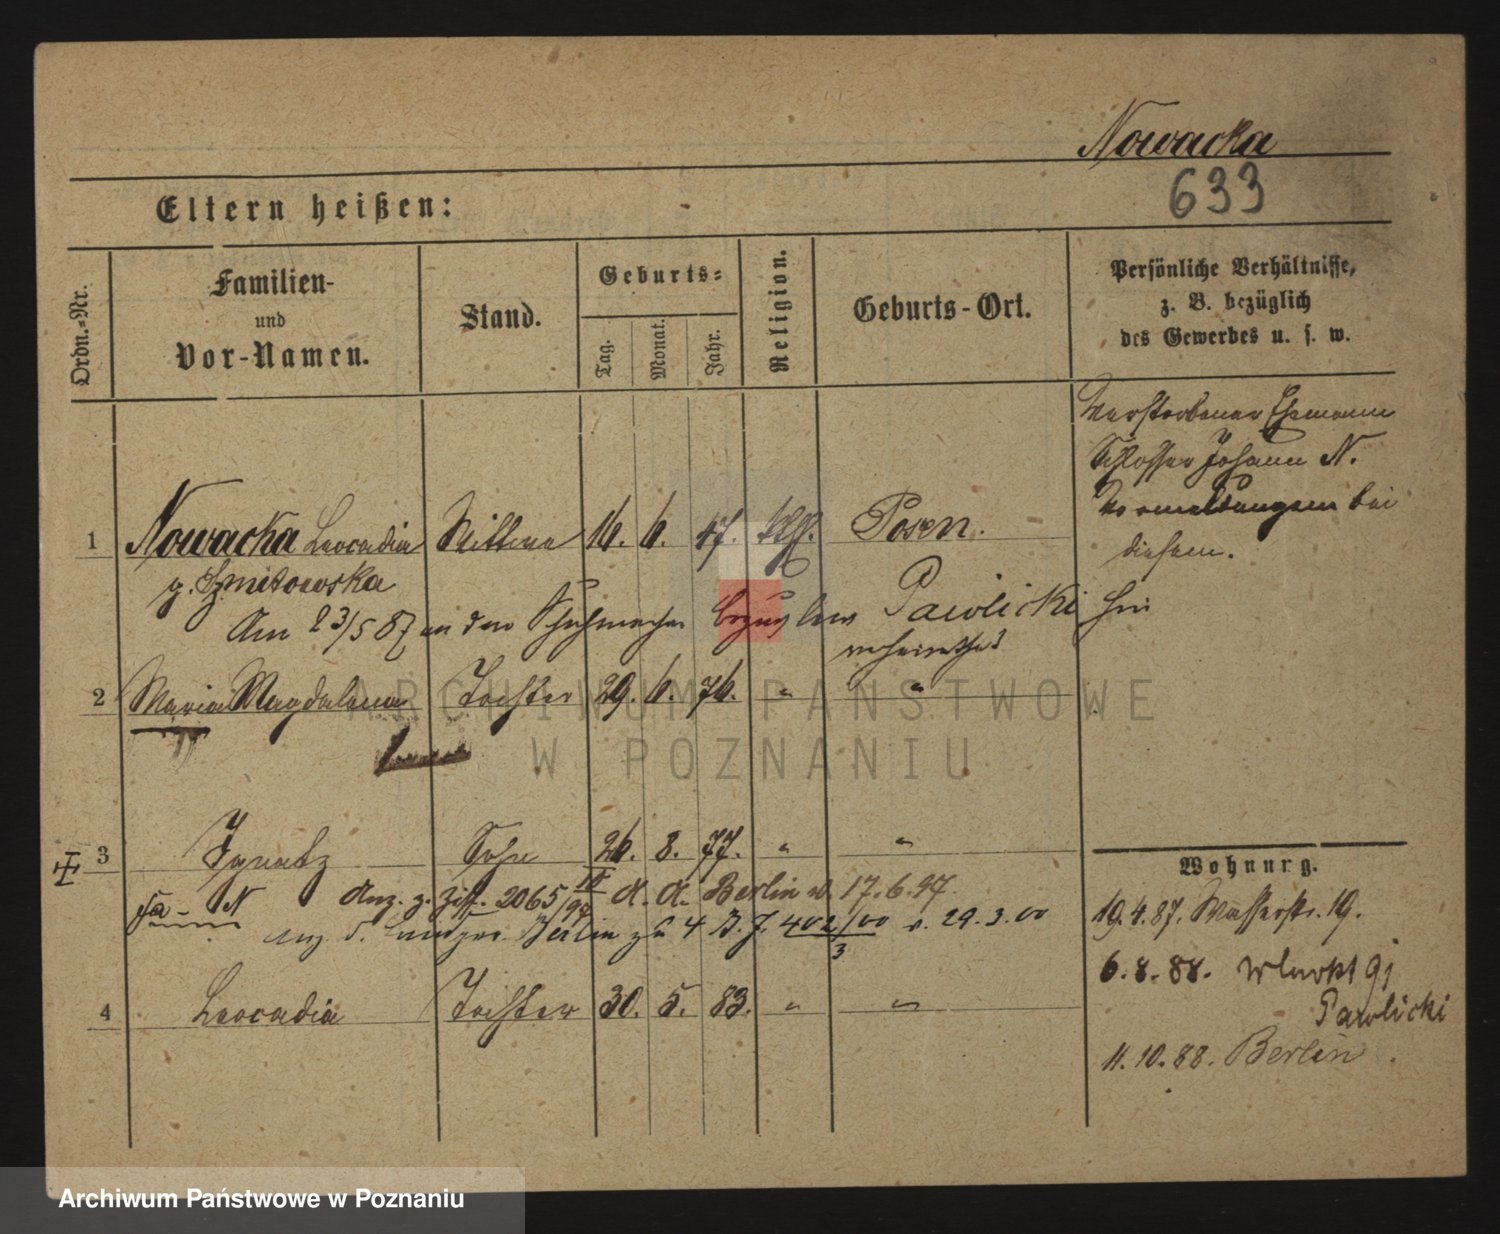 Nowacka
633
Eltern heißen:
Ordn.-Nr.
Familien-
und
Vor-Namen.
Stand.
Geburts-
Tag.
Monat.
Jahr.
Religion.
Geburts-Ort.
Persönliche Verhältnisse,
z. B. bezüglich
des Gewerbes u. s. w.
Verstorbener Ehemann
Schlosser Johann N.
Vermeldungen bei
diesem.
1 Nowacka Leocadia Wittwe 16. 6. 47. kth. Posen.
g. Szmitowska
Am 23/5 87 an den Schuhmacher Pawlicki hier
verheirathet
2 Maria Magdalena Tochter 29. 6. 76. " "
3 Ignatz Sohn 26. 8. 77. " "
N Anz. z. Ziff. 2065/97 IV d. d. Berlin d. 17.6.97.
Anz. d. Berlin zu 4 B. J. 402/00 v. 29.3.00
3
4 Leocadia Tochter 30. 5. 83. " "
Wohnung.
19.4.87. Wasserstr. 19.
6.8.88. 91
Pawlicki
11.10.88. Berlin
ARCHIWUM PAŃSTWOWE
W POZNANIU
Archiwum Państwowe w Poznaniu